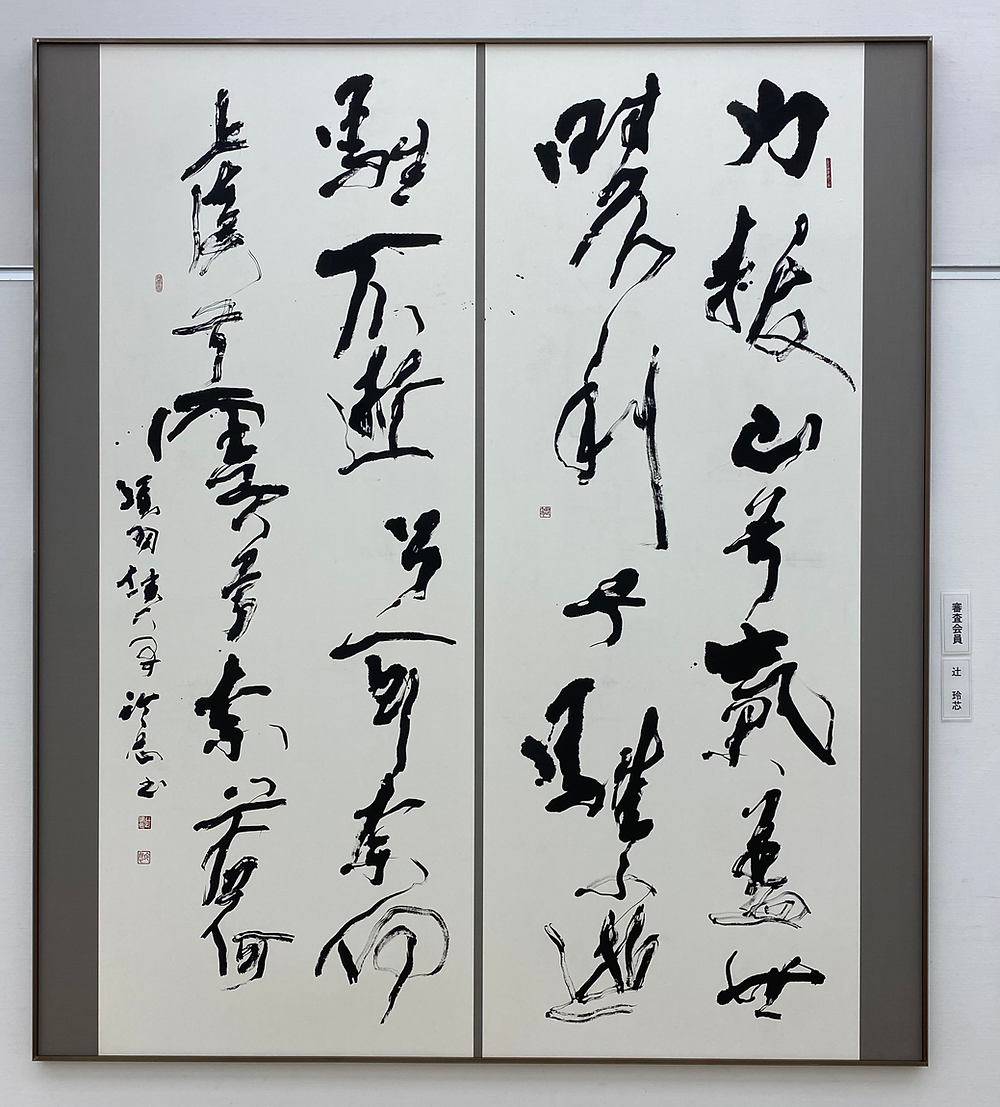 力拔山兮氣蓋世
時不利兮騅不逝
騅不逝兮可奈何
虞兮虞兮奈若何
項羽 玲芯書
審査会員
辻 玲芯